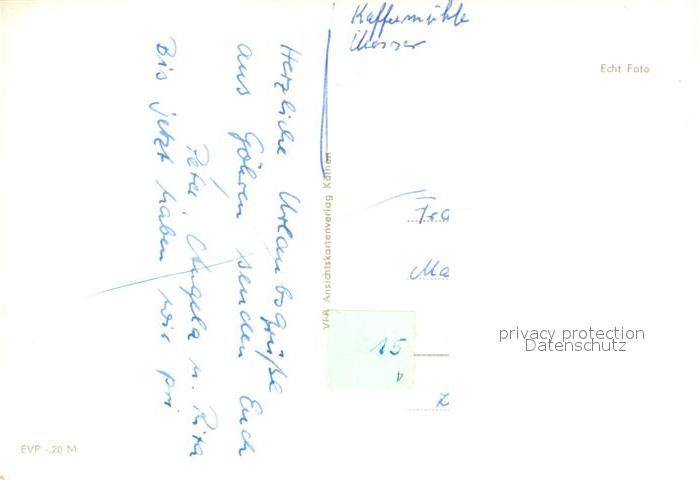 Kaffeemühle
Messer
Echt Foto
Herzliche Urlaubsgrüße
aus Göhren senden Euch
Peter, Angela u. Rita
Bis jetzt haben wir pri
VEB Ansichtskartenverlag Köthen
Fra
Ma
15
privacy protection
Datenschutz
EVP -.20 M